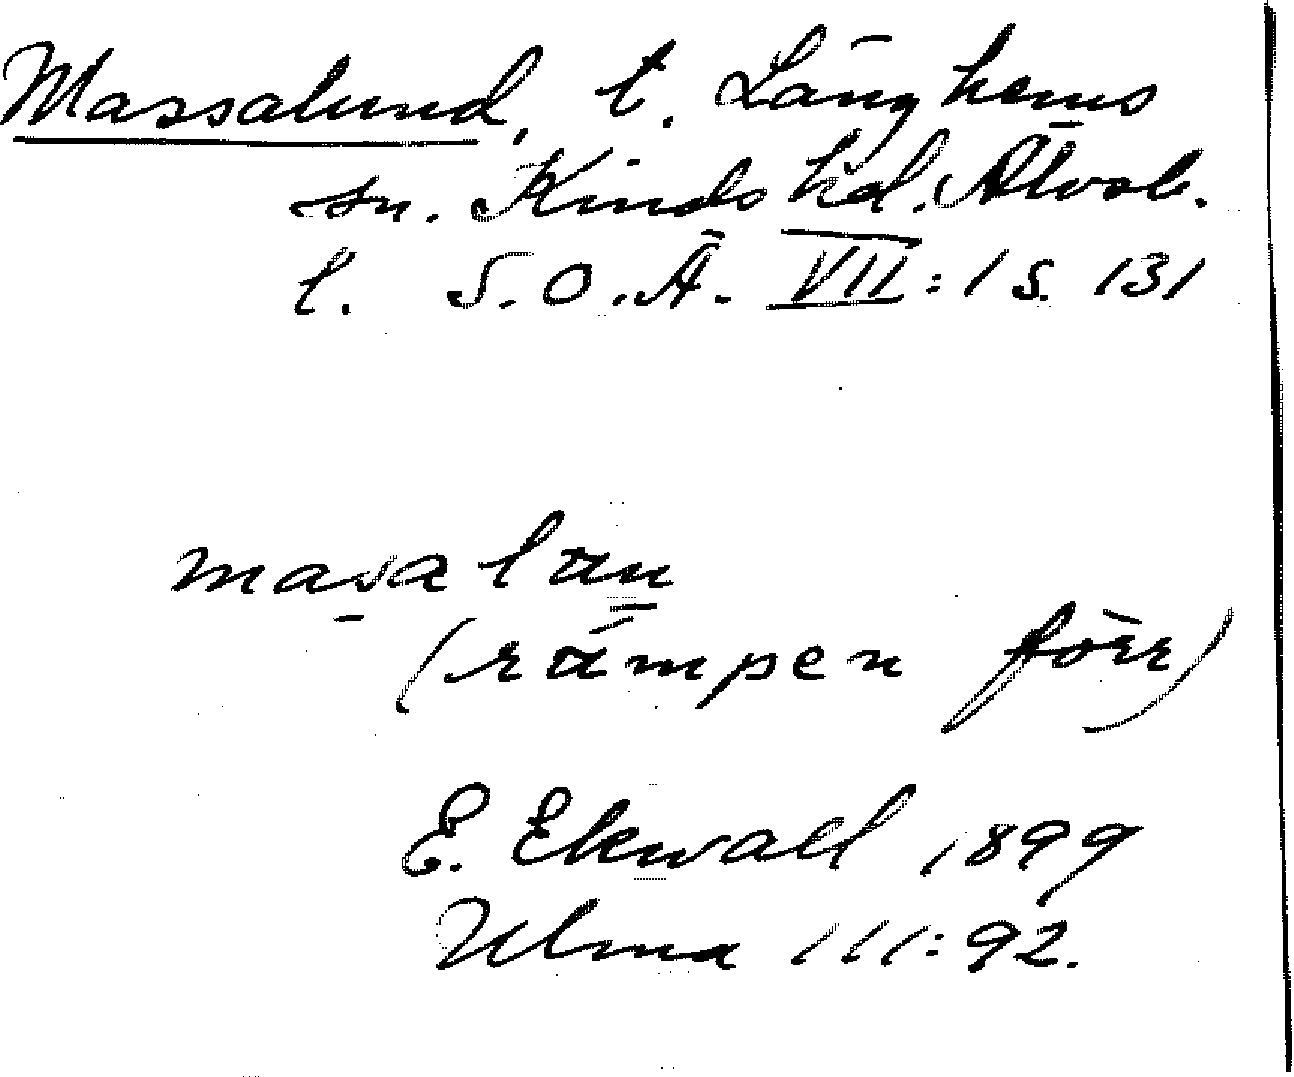 Massalund, t. Länghems
sn. Kinds hd. Älvsb.
l. S.O.Ä. VII:1 s. 131
masa læn
(rämpen förr)
E. Ekwall 1899
Ulma 111:92.